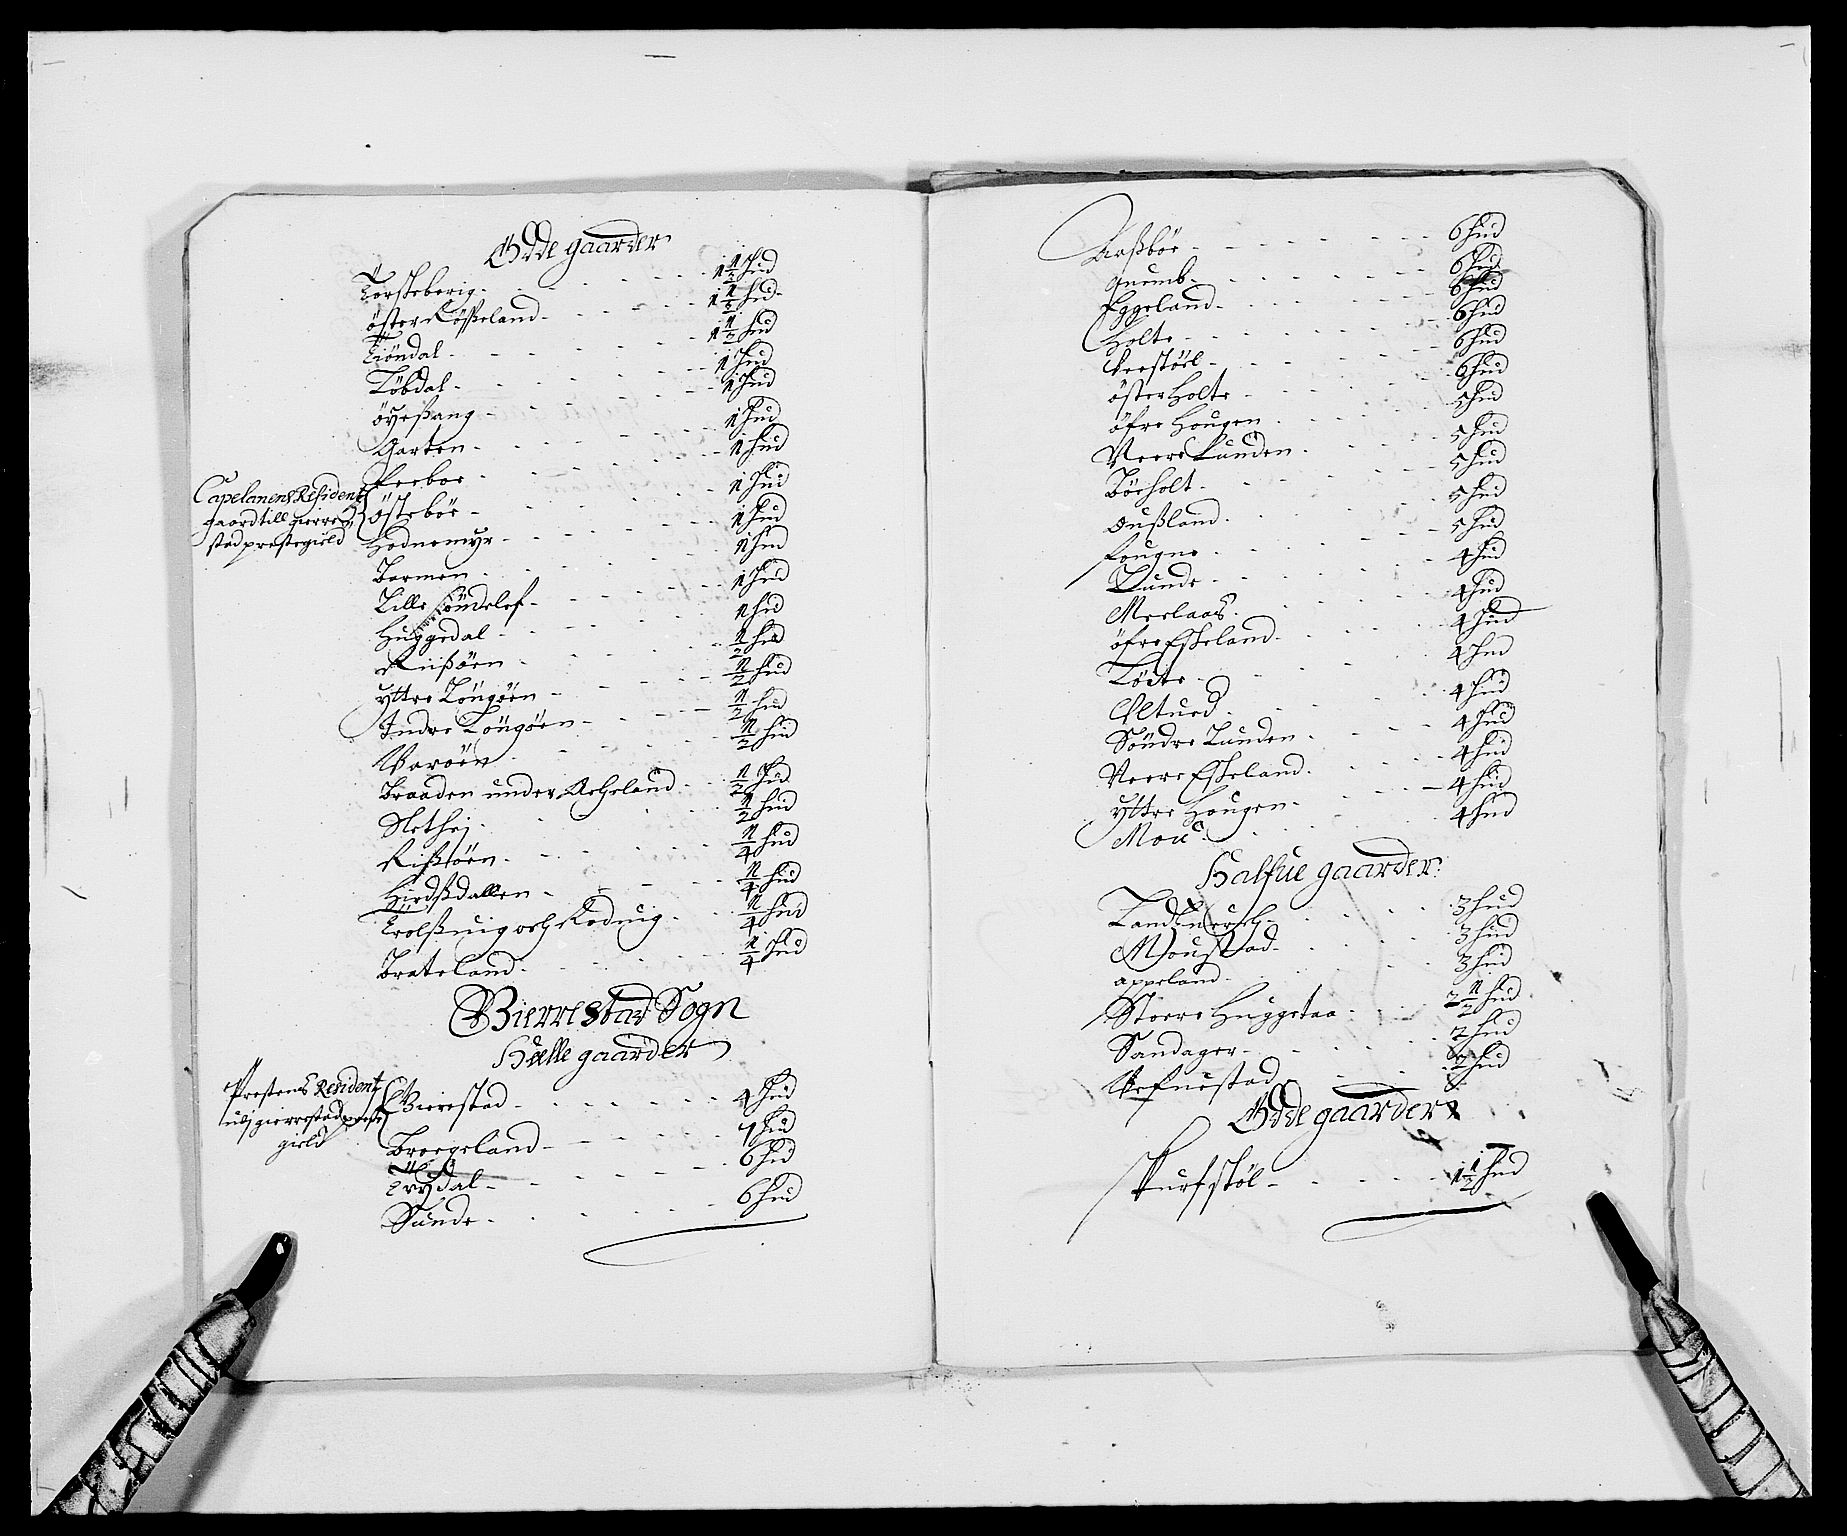 Ödde gaarder
Torskeberig - 1½ hud
öster Rößeland - 1½ hud
Tiöndal - 1½ hud
Löbdal - 1 hud
öyeßang - 1 hud
Garten - 1 hud
1 hud
Capelanens Resident
gaard till gierre
stad prestegield
Östeböe - 1 hud
Hodnemyr - 1 hud
Barmen - 1 hud
Lille Söndelef - 1 hud
Huggedal - 1 hud
Riißöen - ½ hud
Yttre Longöen - ½ hud
Indre Longöen - ½ hud
Baröen - ½ hud
Braaden under Acheland - ½ hud
Slethej - ½ hud
Rißöen - ¼ hud
Hirdßdallen - ¼ hud
Trolßuig och Roduig - ¼ hud
Brateland - ¼ hud
Gierrestad Sogn
Heelle gaarder
Prestens Resident
udj gierrestad preste
gield
Gierestad - 4 hud
Broegeland - 7 hud
Trydal - 6 hud
Sunde - 6 hud
Aaßböe - 6 hud
Quumb - 6 hud
Eggeland - 6 hud
Holte - 6 hud
Veestöel - 6 hud
öster Holte - 6 hud
öfre Hougen - 5 hud
Neere Lunden - 5 hud
Böeholt - 5 hud
Oußland - 5 hud
fougne - 5 hud
Lunde - 4 hud
Meelaas - 4 hud
öfre Eskeland - 4 hud
Löite - 4 hud
Ultued - 4 hud
Söndre Lunden - 4 hud
Neere Eskeland - 4 hud
Yttre Hougen - 4 hud
Moe - 4 hud
Halfue gaarder:
Landbuerch - 3 hud
Moustad - 3 hud
appeland - 3 hud
Stoere Huggetaa - 2½ hud
Sandager - 2 hud
Vefuestad - 2 hud
Ödde gaarder
Skurfstøl - 1½ hud